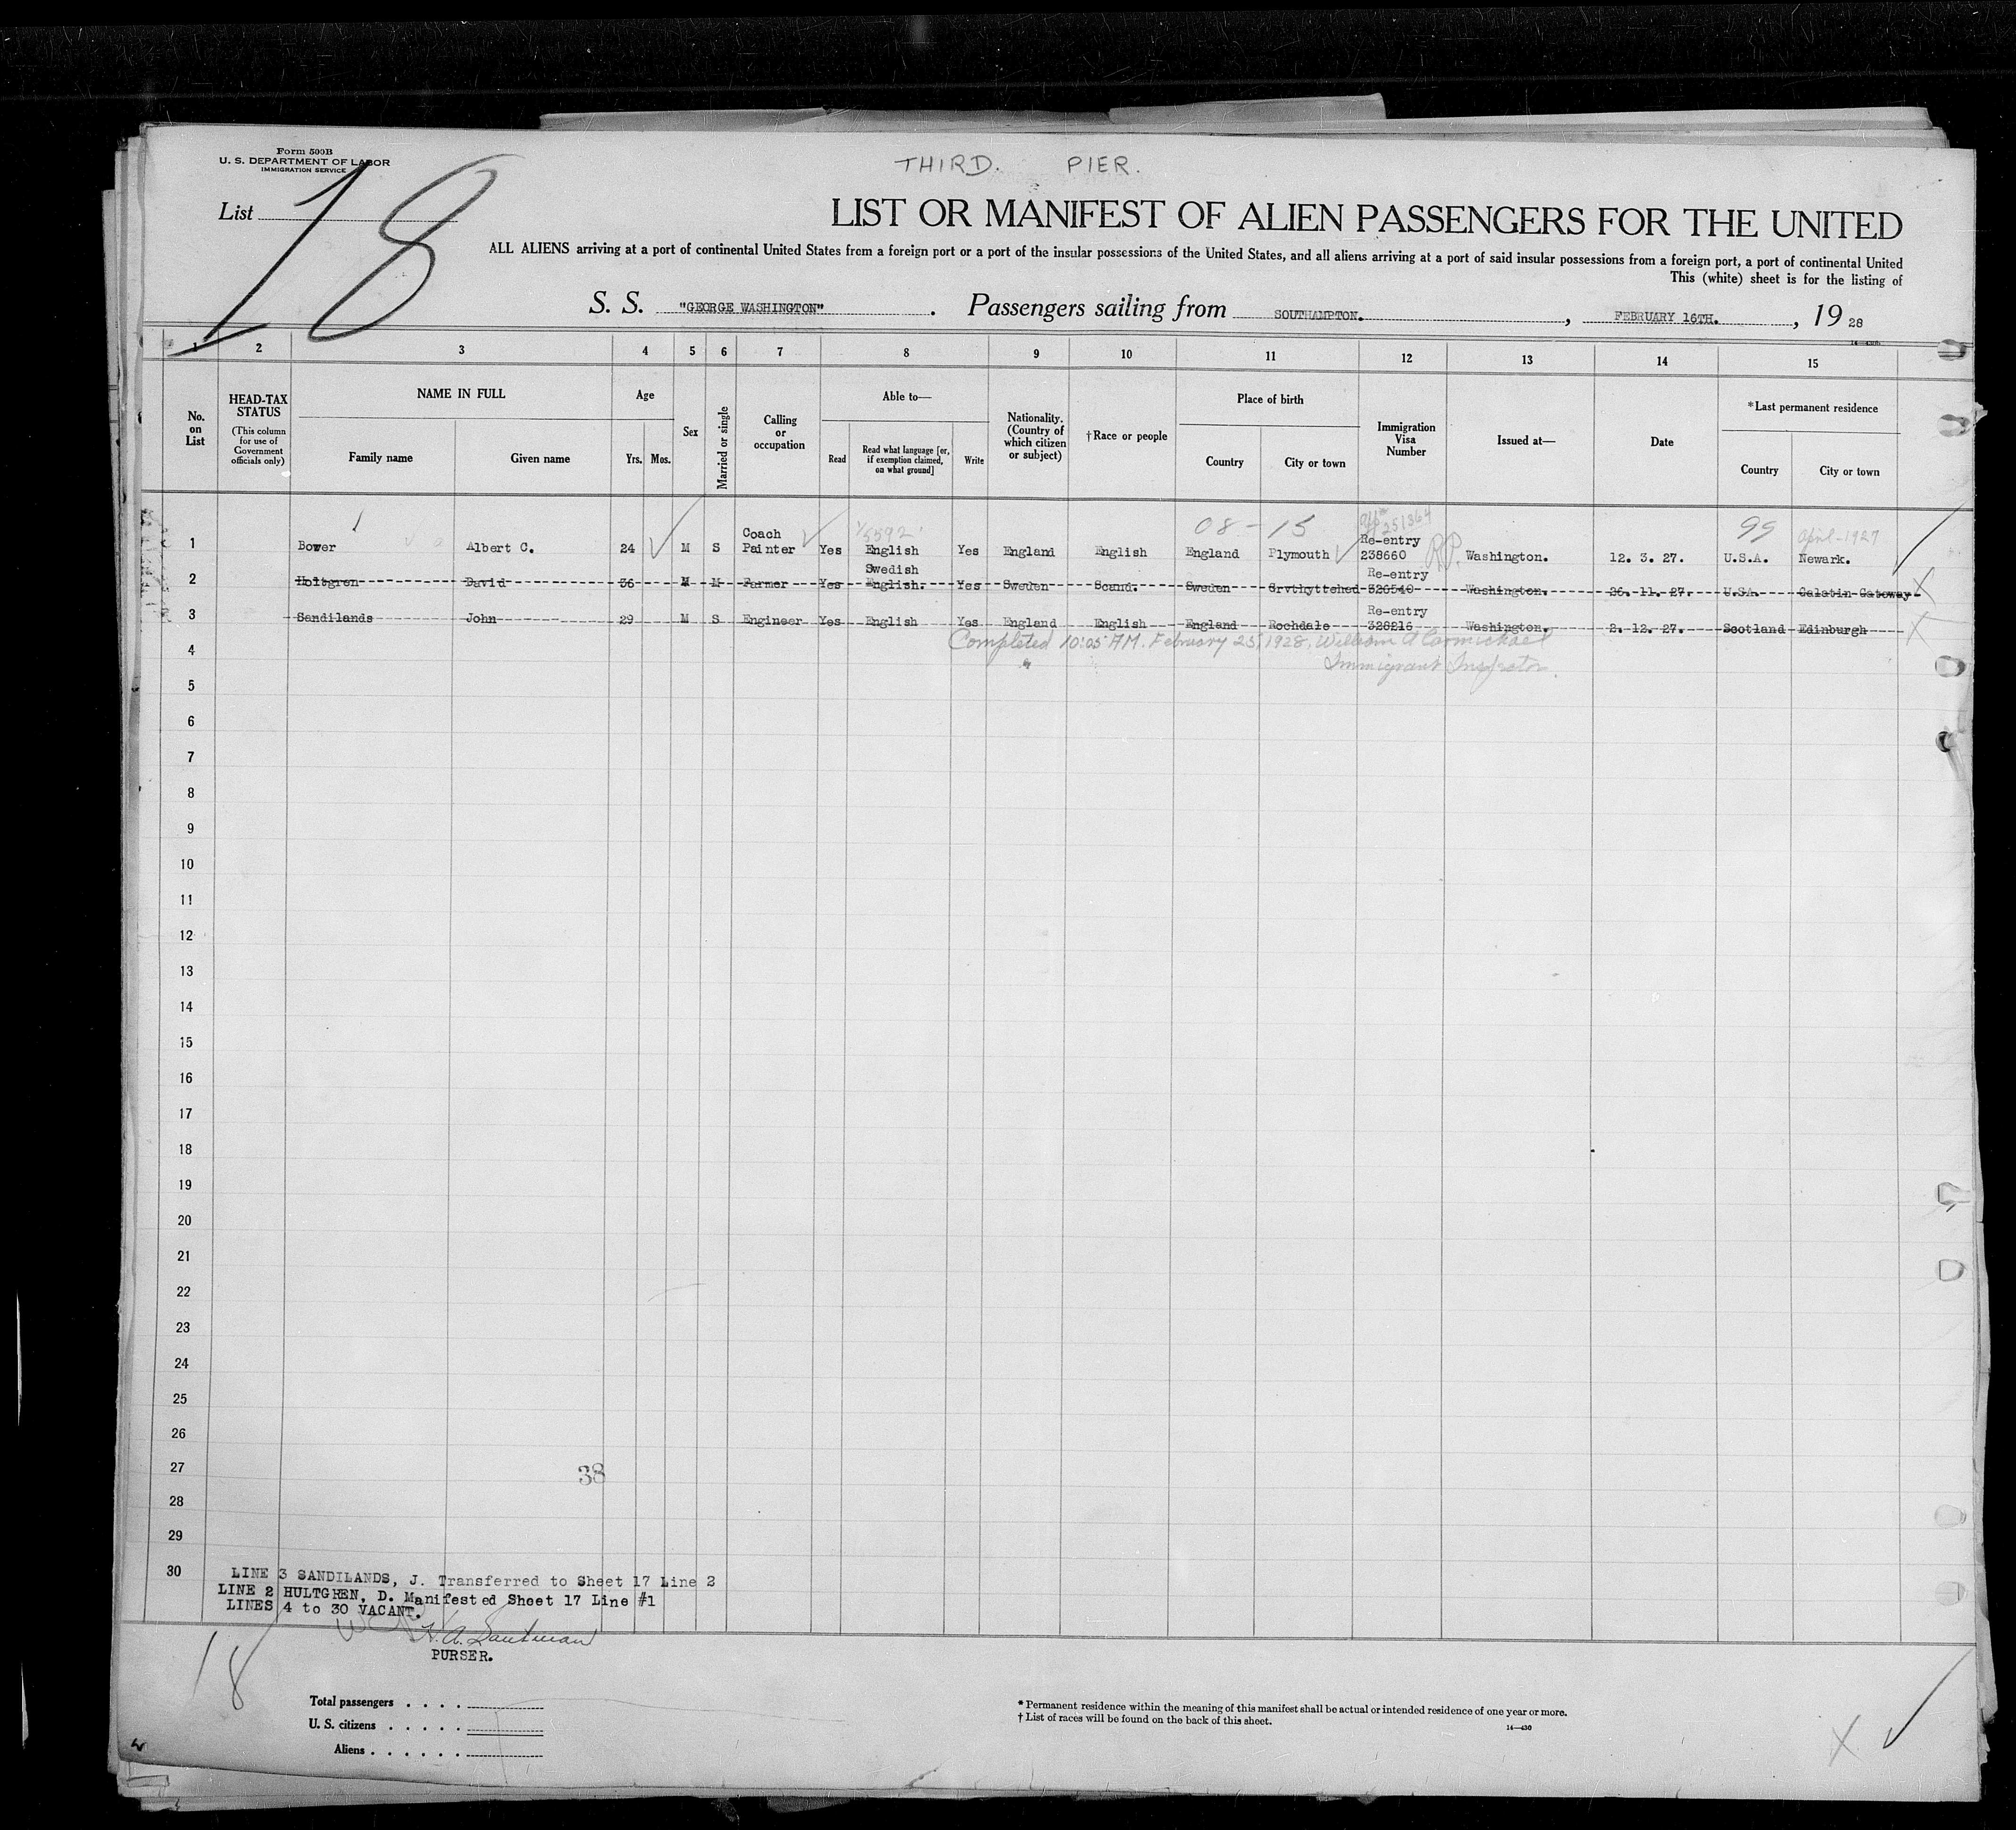 Form 500B
U. S. DEPARTMENT OF LABOR
IMMIGRATION SERVICE
THIRD. PIER.
List 18
LIST OR MANIFEST OF ALIEN PASSENGERS FOR THE UNITED
ALL ALIENS arriving at a port of continental United States from a foreign port or a port of the insular possessions of the United States, and all aliens arriving at a port of said insular possessions from a foreign port, a port of continental United
This (white) sheet is for the listing of
S. S. "GEORGE WASHINGTON" . Passengers sailing from SOUTHAMPTON. , FEBRUARY 16TH. , 19 28
1 2 3 4 5 6 7 8 9 10 11 12 13 14 15
No. on List
HEAD-TAX STATUS (This column for use of Government officials only)
NAME IN FULL
Family name Given name
Age
Yrs. Mos.
Sex
Married or single
Calling or occupation
Able to—
Read Read what language [or, if exemption claimed, on what ground] Write
Nationality. (Country of which citizen or subject)
†Race or people
Place of birth
Country City or town
Immigration Visa Number
Issued at—
Date
*Last permanent residence
Country City or town
08-15 251364 99 April-1927
1 Bower Albert C. 24 M S Coach Painter Yes English Yes England English England Plymouth Re-entry 238660 R.P. Washington. 12. 3. 27. U.S.A. Newark.
2 Holtgren David 36 M M Farmer Yes Swedish English. Yes Sweden Scand. Sweden Re-entry 326540 Washington. 26. 11. 27. U.SA. Galatin Gateway
3 Sandilands John 29 M S Engineer Yes English Yes England English England Rochdale Re-entry 328216 Washington. 2. 12. 27. Scotland Edinburgh
Completed 10:05 AM. February 25, 1928. William A Carmichael
4
Immigrant Inspector.
5
6
7
8
9
10
11
12
13
14
15
16
17
18
19
20
21
22
23
24
25
26
27
38
28
29
30
LINE 3 SANDILANDS, J. Transferred to Sheet 17 Line 2
LINE 2 HULTGREN, D. Manifested Sheet 17 Line #1
LINES 4 to 30 VACANT.
PURSER.
18
Total passengers . . . .
U. S. citizens . . . . .
Aliens . . . . . .
* Permanent residence within the meaning of this manifest shall be actual or intended residence of one year or more.
† List of races will be found on the back of this sheet.
14—430